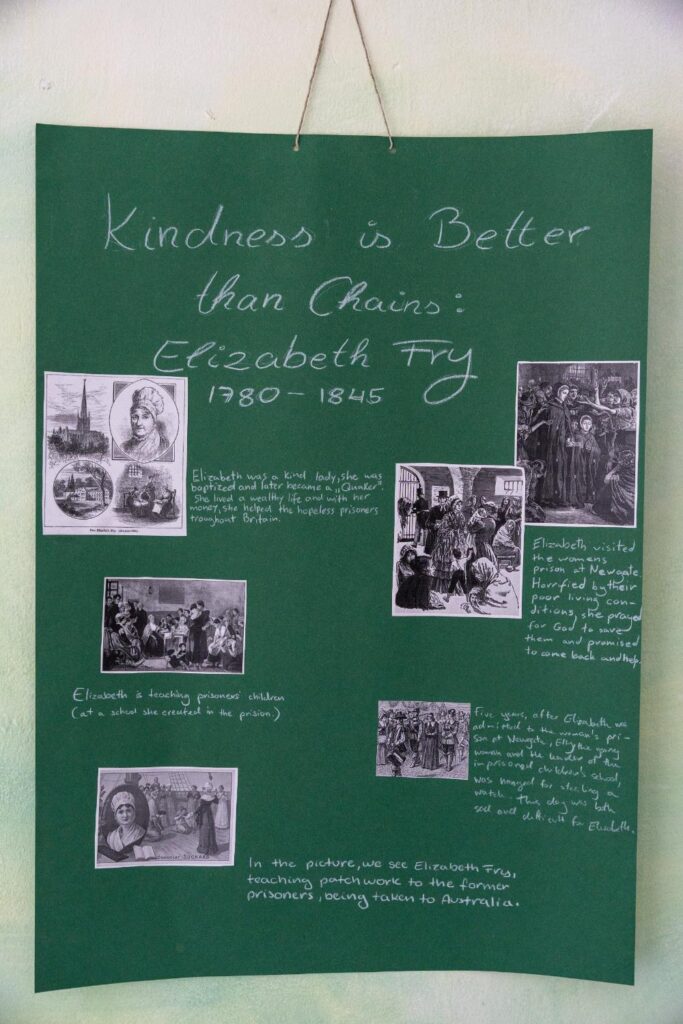 Kindness is Better
than Chains:
Elizabeth Fry
1780 – 1845
Elizabeth was a kind lady, she was
baptized and later became a „Quaker".
She lived a wealthy life and with her
money, she helped the hopeless prisoners
troughout Britain.
Elizabeth visited
the womens
prison at Newgate.
Horrified by their
poor living con-
ditions, she prayed
for God to save
them and promised
to come back and help.
Elizabeth is teaching prisoners' children
(at a school she created in the prision)
Five years, after Elizabeth was
admitted to the woman's pri-
son at Newgate, the young
woman and the leader of the
imprisoned children's school,
was hanged for stealing a
watch. This day was both
sad and difficult for Elizabeth.
CHOCOLAT SUCHARD
In the picture, we see Elizabeth Fry,
teaching patchwork to the former
prisoners, being taken to Australia.